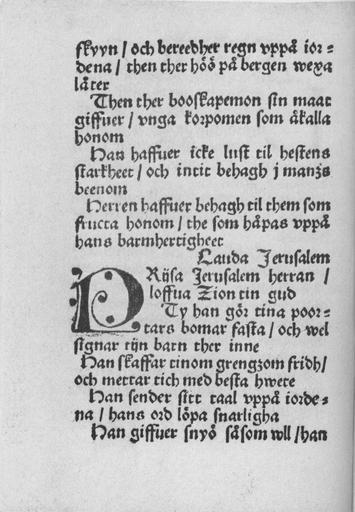 skyyn / och bereedher regn vppå ior=
dena / then ther höö på bergen wexa
låter
Then ther booskapemon sin maat
giffuer / vnga korpomen som åkalla
honom
Han haffuer icke lust til hestens
starkheet / och intit behagh j manzs
beenom
Herren haffuer behagh til them som
fructa honom / the som håpas vppå
hans barmhertigheet
Lauda Jerusalem
PRijsa Jerusalem herran /
loffua Zion tin gud
Ty han gör tina poor=
tars bomar fasta / och wel
signar tijn barn ther inne
Han skaffar tinom grengzom fridh/
och mettar tich med besta hwete
Han sender sitt taal vppå iorde=
na / hans ord löpa snarligha
Han giffuer snyö såsom wll /han